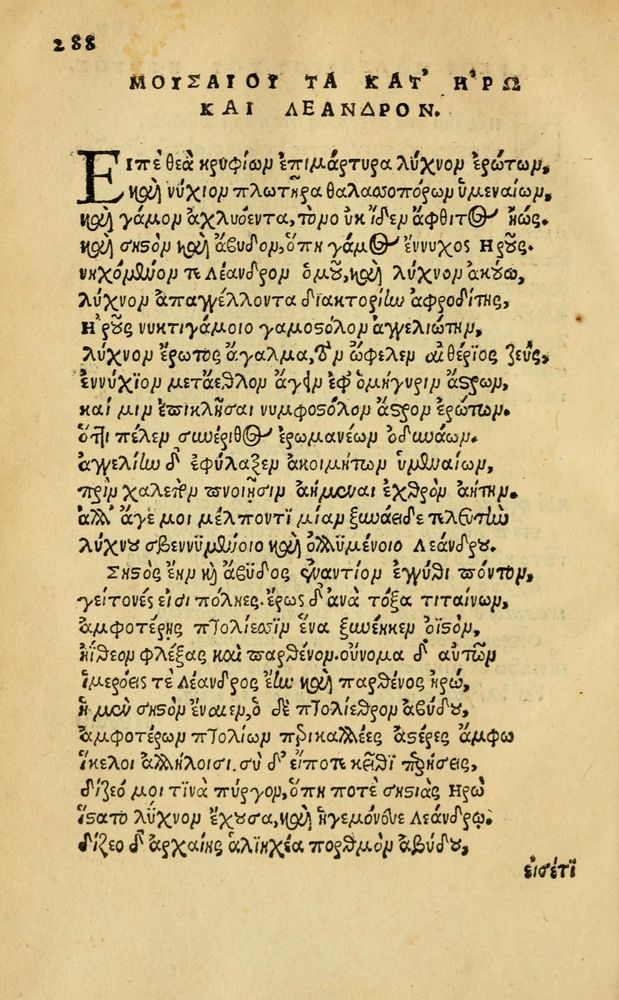 288
ΜΟΥΣΑΙΟΥ ΤΑ ΚΑΘ' ΗΡΩ
ΚΑΙ ΛΕΑΝΔΡΟΝ.
Εἰπὲ θεὰ κρυφίων ἐπιμάρτυρα λύχνον ἐρώτων,
καὶ νύχιον πλωτῆρα θαλασσοπόρων ὑμεναίων,
καὶ γάμον ἀχλυόεντα, τὸν οὐκ ἴδεν ἄφθιτος ἠώς.
καὶ σηστὸν καὶ ἄβυδον, ὅπη γάμος ἔννυχος Ηροῦς.
νηχόμενόν τε Λέανδρον ὁμοῦ, καὶ λύχνον ἀκούω,
λύχνον ἀπαγγέλλοντα διακτορίην ἀφροδίτης,
Ηροῦς νυκτιγάμοιο γαμοστόλον ἀγγελιώτην,
λύχνον ἔρωτος ἄγαλμα, τὸν ὤφελεν αἰθέριος ζεὺς,
ἐννύχιον μετάεθλον ἄγειν ἐφ' ὁμήγυριν ἄστρων,
καί μιν ἐπικλῆσαι νυμφοστόλον ἄστρον ἐρώτων.
ὅττι πέλεν συνέριθος ἐρωμανέων ὀδυνάων.
ἀγγελίην δ' ἐφύλαξεν ἀκοιμήτων ὑμεναίων,
πρὶν χαλεπὸν πνοιῇσιν ἀήμεναι ἐχθρὸν ἀήτην.
ἀλλ' ἄγε μοι μέλποντι μίαν ξυνάειδε τελευτὴν
λύχνου σβεννυμένοιο καὶ ὀλλυμένοιο Λεάνδρου.
Σηστὸς ἔην καὶ ἄβυδος ἐναντίον ἐγγύθι πόντου,
γείτονές εἰσι πόληες. ἔρως δ' ἀνὰ τόξα τιταίνων,
ἀμφοτέρῃς πτολίεσσιν ἕνα ξυνέηκεν ὀϊστὸν,
ἠΐθεον φλέξας καὶ παρθένον. οὔνομα δ' αὐτῶν
ἱμερόεις τὲ Λέανδρος ἔην καὶ παρθένος ἡρώ,
ἡ μὲν σηστὸν ἔναιεν, ὁ δὲ πτολίεθρον ἀβύδου,
ἀμφοτέρων πτολίων περικαλλέες ἀστέρες ἄμφω
ἴκελοι ἀλλήλοισι. σὺ δ' εἴποτε κεῖθι περήσεις,
δίζεό μοι τινὰ πύργον, ὅπη ποτὲ σηστιὰς Ηρὼ
ἵστατο λύχνον ἔχουσα, καὶ ἡγεμόνευε Λεάνδρῳ.
δίζεο δ' ἀρχαίης ἁλιηχέα πορθμὸν ἀβύδου,
εἰσέτι